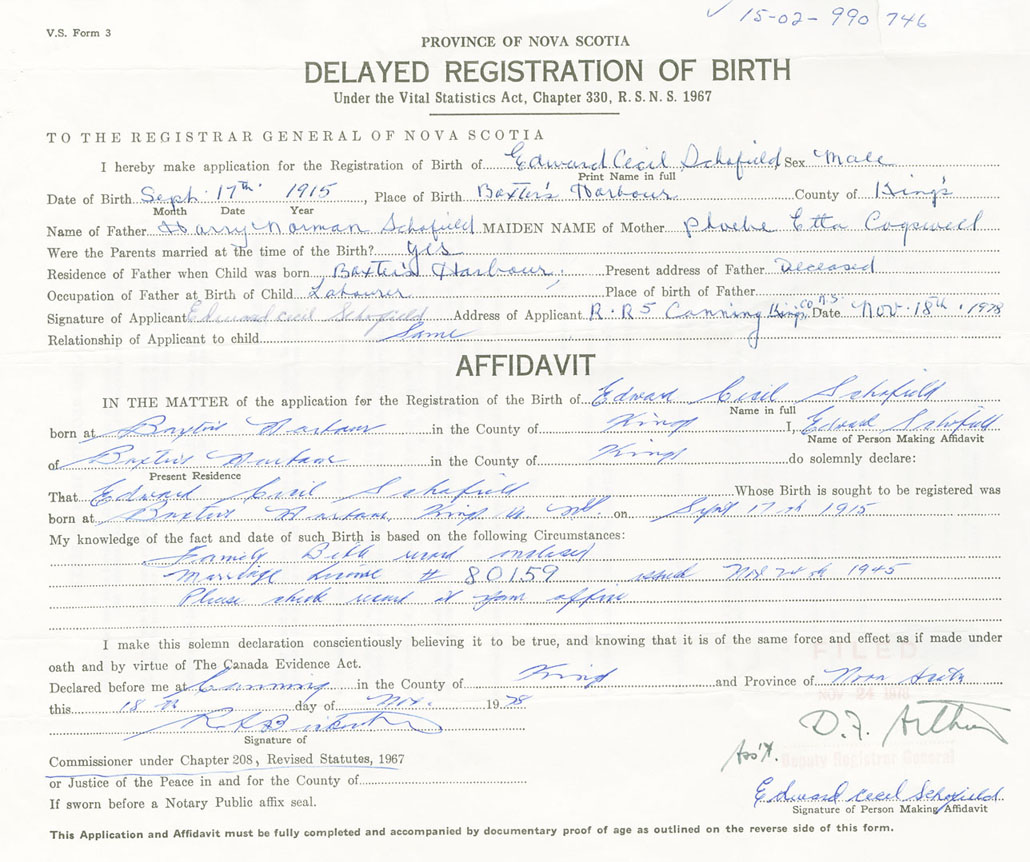 ✓ 15-02-990746
V.S. Form 3
PROVINCE OF NOVA SCOTIA
DELAYED REGISTRATION OF BIRTH
Under the Vital Statistics Act, Chapter 330, R. S. N. S. 1967
TO THE REGISTRAR GENERAL OF NOVA SCOTIA
I hereby make application for the Registration of Birth of Edward Cecil Schofield Sex Male
Print Name in full
Date of Birth Sept. 17th 1915, Place of Birth Baxter's Harbour County of King's
Month Date Year
Name of Father Harry Norman Schofield MAIDEN NAME of Mother Phoebe Etta Cogswell
Were the Parents married at the time of the Birth? yes
Residence of Father when Child was born Baxter's Harbour; Present address of Father Deceased
Occupation of Father at Birth of Child Labourer Place of birth of Father
Signature of Applicant Edward Cecil Schofield Address of Applicant R.R 5 Canning Kings Co. N.S Date Nov. 18th. 1978
Relationship of Applicant to child Same
AFFIDAVIT
IN THE MATTER of the application for the Registration of Birth of Edward Cecil Schofield
Name in full
born at Baxters Harbour in the County of Kings I, Edward Schofield
Name of Person Making Affidavit
of Baxters Harbour in the County of Kings do solemnly declare:
Present Residence
That Edward Cecil Schofield Whose Birth is sought to be registered was
born at Baxters Harbour, Kings on Sept 17th 1915
My knowledge of the fact and date of such Birth is based on the following Circumstances:
Family Birth record enclosed
Marriage license # 80159 issued Nov 24th 1945
Please check record at your office
I make this solemn declaration conscientiously believing it to be true, and knowing that it is of the same force and effect as if made under
oath and by virtue of The Canada Evidence Act.
FILED
Declared before me at Canning in the County of Kings and Province of Nova Scotia
NOV 24 1978
this 18th day of Nov. 1978
D.F. Arthur
Signature of
Ass't. Deputy Registrar General
Commissioner under Chapter 208, Revised Statutes, 1967
or Justice of the Peace in and for the County of
Edward Cecil Schofield
If sworn before a Notary Public affix seal.
Signature of Person Making Affidavit
This Application and Affidavit must be fully completed and accompanied by documentary proof of age as outlined on the reverse side of this form.